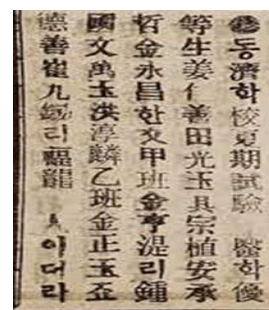 ●동濟학校夏期試驗 醫학優
等生姜仁善田光玉具宗植安承
哲金永昌한文甲班金亨湜리鍾
國文萬玉洪淳麟乙班金正玉죠
德善崔九 리福龍 人이더라